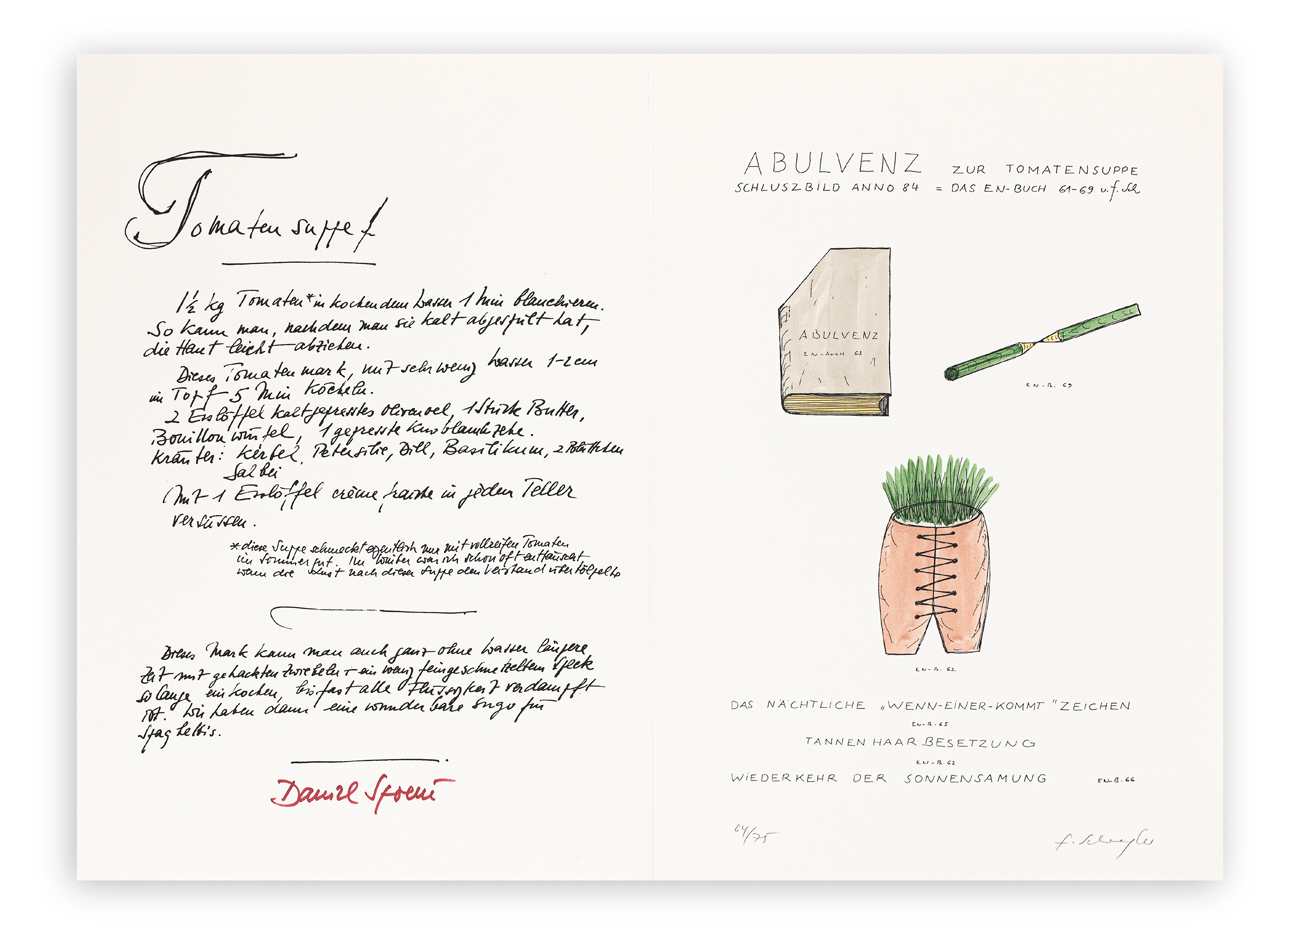 Tomatensuppe
1½ kg Tomaten* in kochendem Wasser 1 Min blanchieren.
So kann man, nachdem man sie kalt abgespült hat,
die Haut leicht abziehen.
Dieses Tomatenmark, mit sehr wenig Wasser 1-2 cm
im Topf 5 Min Köcheln.
2 Esslöffel kaltgepresstes Olivenoel, 1 Stück Butter,
Bouillonwürfel, 1 gepresste Knoblauchzehe.
Kräuter: Kerbel, Petersilie, Dill, Basilikum, 2 Blättchen
Salbei
(Mit 1 Esslöffel crème fraiche in jeden Teller
versüssen.
* diese Suppe schmeckt eigentlich nur mit vollreifen Tomaten
im Sommer gut. Im Winter war ich schon oft enttäuscht
wenn die Lust nach dieser Suppe den Verstand übertölpelte
Dieses Mark kann man auch ganz ohne Wasser längere
Zeit mit gehackten Zwiebeln + ein wenig feingeschnetzeltem Speck
so lange einkochen, bis fast alle Flüssigkeit verdampft
ist. Wir haben dann eine wunderbare Sugo für
Spaghettis.
Daniel Spoerri
ABULVENZ ZUR TOMATENSUPPE
SCHLUSZBILD ANNO 84 = DAS EN-BUCH 61-69 v. f. Sch
ABULVENZ
EN-BUCH 63
EN-B. 69
EN-B. 62
DAS NÄCHTLICHE „WENN-EINER-KOMMT" ZEICHEN
EN-B. 65
TANNENHAARBESETZUNG
EN-B. 62
WIEDERKEHR DER SONNENSAMUNG EN-B. 66
64/75